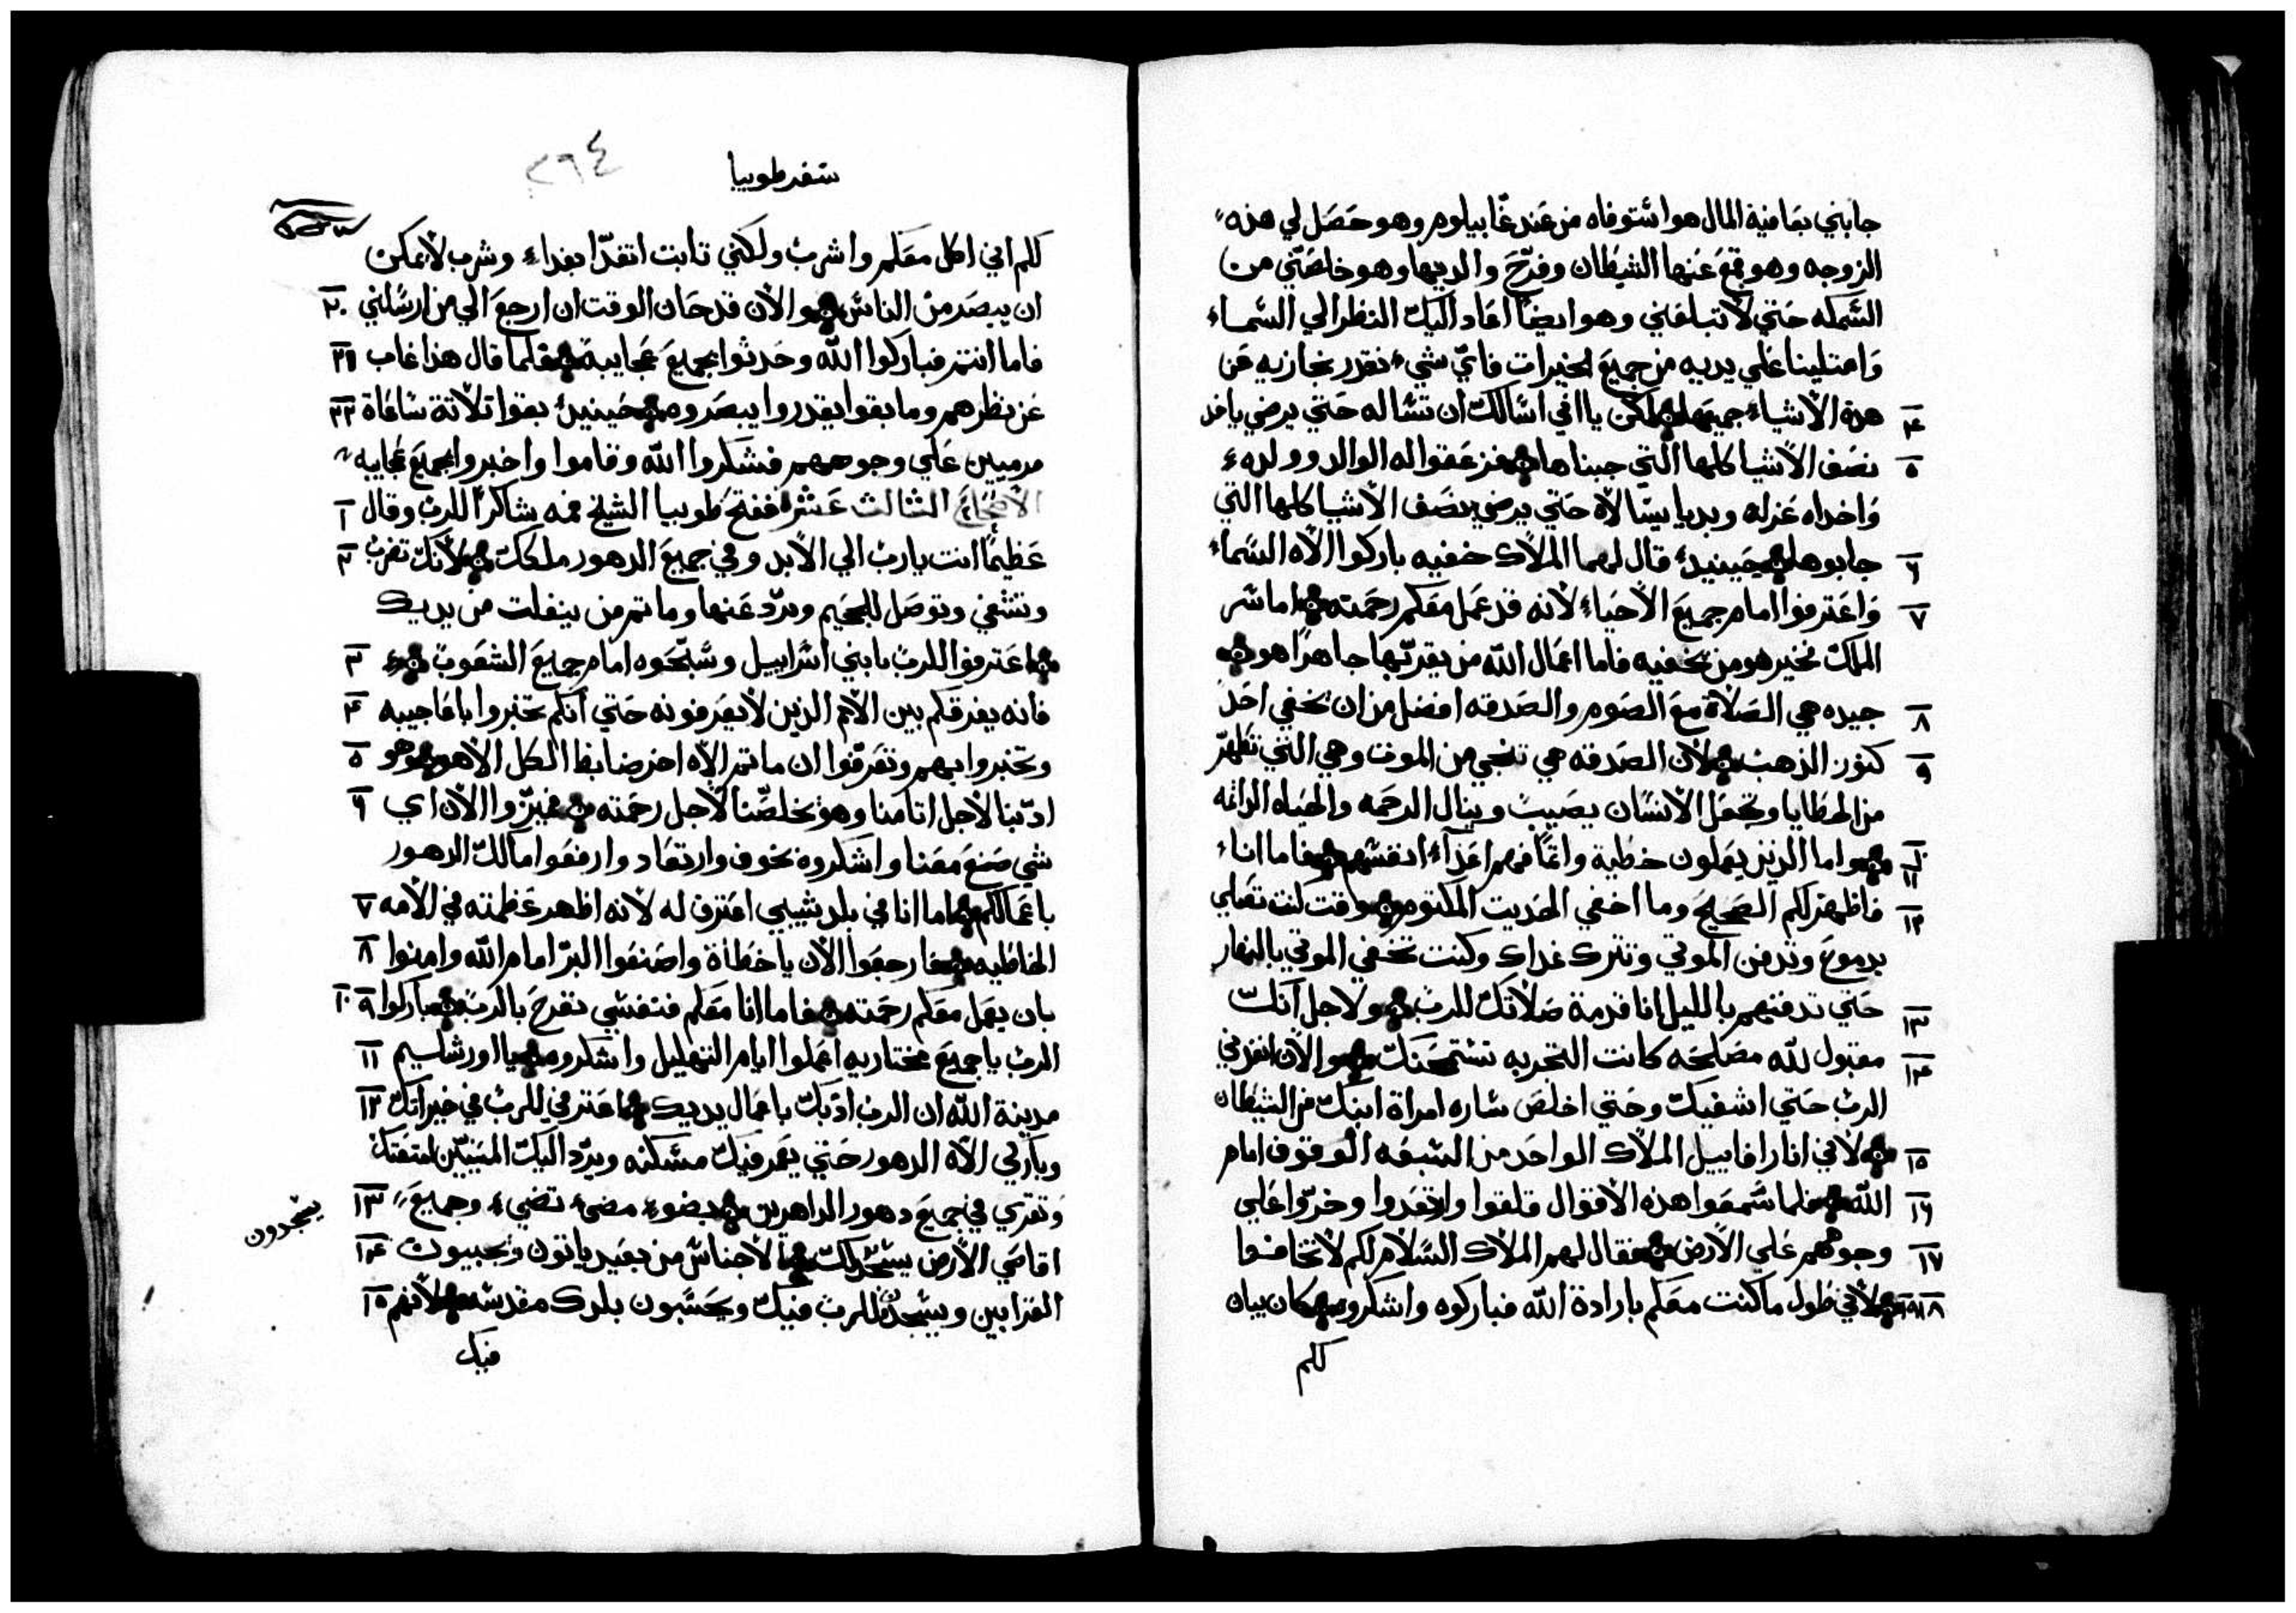 جابني بعافية المال هو استوفاه من عند غابيلوم وهو حصل لي هذه
الزوجه وهو قمع عنها الشيطان وفرّح والديها وهو خلصّني من
السمكه حتي لا تبلعني وهو ايضًا اعاد اليك النظر الي السماء
وامتلينا علي يديه من جميع الخيرات فايّ شيء نقدر نجازيه عن
٤ هذه الأشياء جميعها لكن يا ابي اسالك ان تساله حتي يرضي ياخد
٥ نصف الأشيا كلها التي جبناها فزعقوا له الوالد وولده
واخداه عزله وبديا يسالاه حتي يرضي بنصف الأشيا كلها التي
٦ جابوها حينيدٍ قال لهما الملاك خفيه باركوا الاه السماء
٧ واعترفوا امام جميع الأحياء لأنه قد عمل معكم رحمته اما سر
الملك فخير هو من يخفيه فاما اعمال الله من يقريّها جاهرًا هو
٨ جيده هي الصلاة مع الصوم والصدقه افضل من ان يخفي احد
٩ كنوز الذهب لأن الصدقه هي تنجي من الموت وهي التي تطهرّ
من الخطايا وتجعل الأنسان يصيب وينال الرحمه والحياه الدائمه
١٠ ١١ واما الذين يعملون خطية واثمًا فهم اعداء انفسهم فاما انا
١٢ فاظهر لكم الصحيح وما اخفي الحديت المكتوم وقت كنت تصلي
بدموع وتدفن الموتي وتترك غداك وكنت تخفي الموتي بالنهار
١٣ حتي تدفنهم بالليل انا قدمة صلاتك للرب ولأجل انك
١٤ مقبول لله مصلحه كانت التجربه تستمحنك والأن انفدني
الرب حتي اشفيك وحتي اخلص ساره امراة ابنك من الشيطان
١٥ لأني انا رافاييل الملاك الواحد من السبعه الوقوف امام
١٦ الله فلما سمعوا هذه الأقوال قلقوا وارتعدوا وخرّوا علي
١٧ وجوههم علي الأرض فقال لهم الملاك السلام لكم لا تخافوا
١٨ ١٩ لأني طول ما كنت معكم بارادة الله فباركوه واشكروه كان يبان
لكم
سفر طوبيا
٢٦٤
لكم اني اكل معكم واشرب ولكني تابت اتغدّا بغداء وشرب لأيمكن
ان يبصر من الناس والأن قد حان الوقت ان ارجع الي من ارسلني ٢٠
فاما انتم فباركوا الله وحدثوا بجميع عجايبه فلما قال هذا غاب ٢١
عن نظرهم وما بقوا يقدروا يبصروه حينيدٍ بقوا تلاتة ساعاة ٢٢
مرميين علي وجوههم فشكروا الله وقاموا واخبروا بجميع عجايبه
الأصحاح الثالث عشر ففتح طوبيا الشيخ فمه شاكرًا للرب وقال ١
عظيمًا انت يا رب الي الأبد وفي جميع الدهور ملكك لأنك تضرب ٢
وتشفي وتوصل للجحيم وتردّ عنها وما تم من ينفلت من يديك
اعترفوا للرب يا بني اسراييل وسبّحوه امام جميع الشعوب ٣
فانه يفرقكم بين الأمم الذين لا يعرفونه حتي انكم تخبروا باعاجيبه ٤
وتخبروا بهم وتعرفّوا ان ما تم الاه اخر ضابط الكل الأ هو وهو ٥
ادبّنا لأجل اتامنا وهو يخلصّنا لأجل رحمته فميزّوا الأن اي ٦
شي صنع معنا واشكروه بخوف وارتعاد وارفعوا مالك الدهور
باعمالكم اما انا في بلد سبيي اعترف له لأنه اظهر عظمته في الأمه ٧
الخاطيه فارجعوا الأن يا خطاة واصنعوا البرّ امام الله وامنوا ٨
بان يعمل معكم رحمته فاما انا معكم فنفسي تفرح بالرب باركوا ٩ ١٠
الرب يا جميع مختاريه اعملوا ايام التهليل واشكروه يا اورشليم ١١
مدينة الله ان الرب ادّبك باعمال يديك اعترفي للرب في خيراتك ١٢
وباركي الاه الدهور حتي يعمر فيك مسكنه ويردّ اليك المسبيّن
وتفرحي في جميع دهور الداهرين بضوء مضيء تضيء وجميع ١٣
اقاصي الأرض يسجد لك الأجناس من بعيد ياتون ويجيبون ١٤
يسجدون
القرابين ويسجدون للرب فيك ويحسبون بلدك مقدسه لأنهم ١٥
فيك